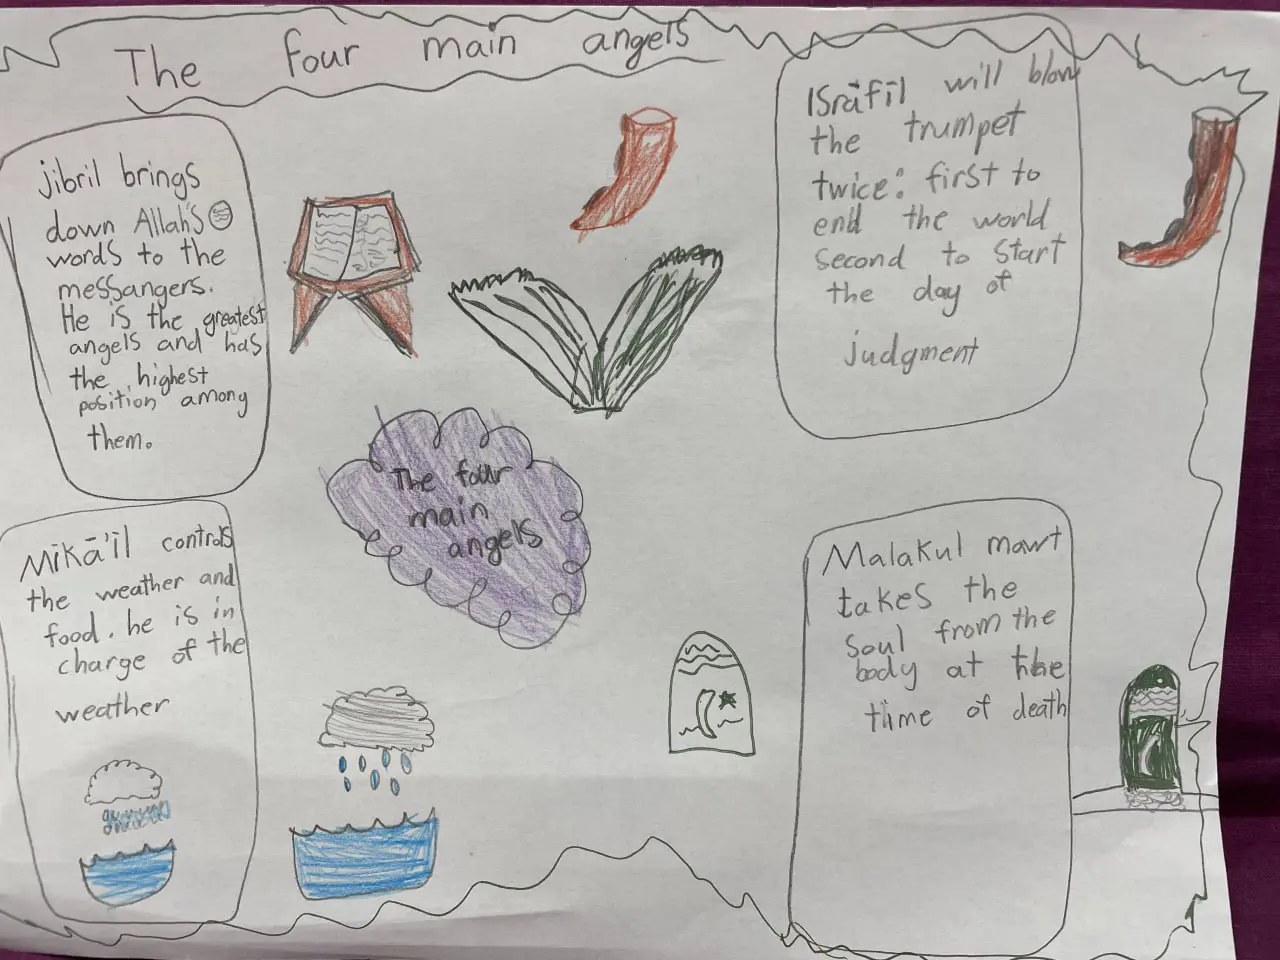 The four main angels
jibril brings
down Allah's
words to the
messangers.
He is the greatest
angels and has
the highest
position among
them.
Isrāfīl will blow
the trumpet
twice: first to
end the world
second to start
the day of
judgment
The four
main
angels
Mīkā'īl controls
the weather and
food. he is in
charge of the
weather
Malakul mawt
takes the
soul from the
body at the
time of death